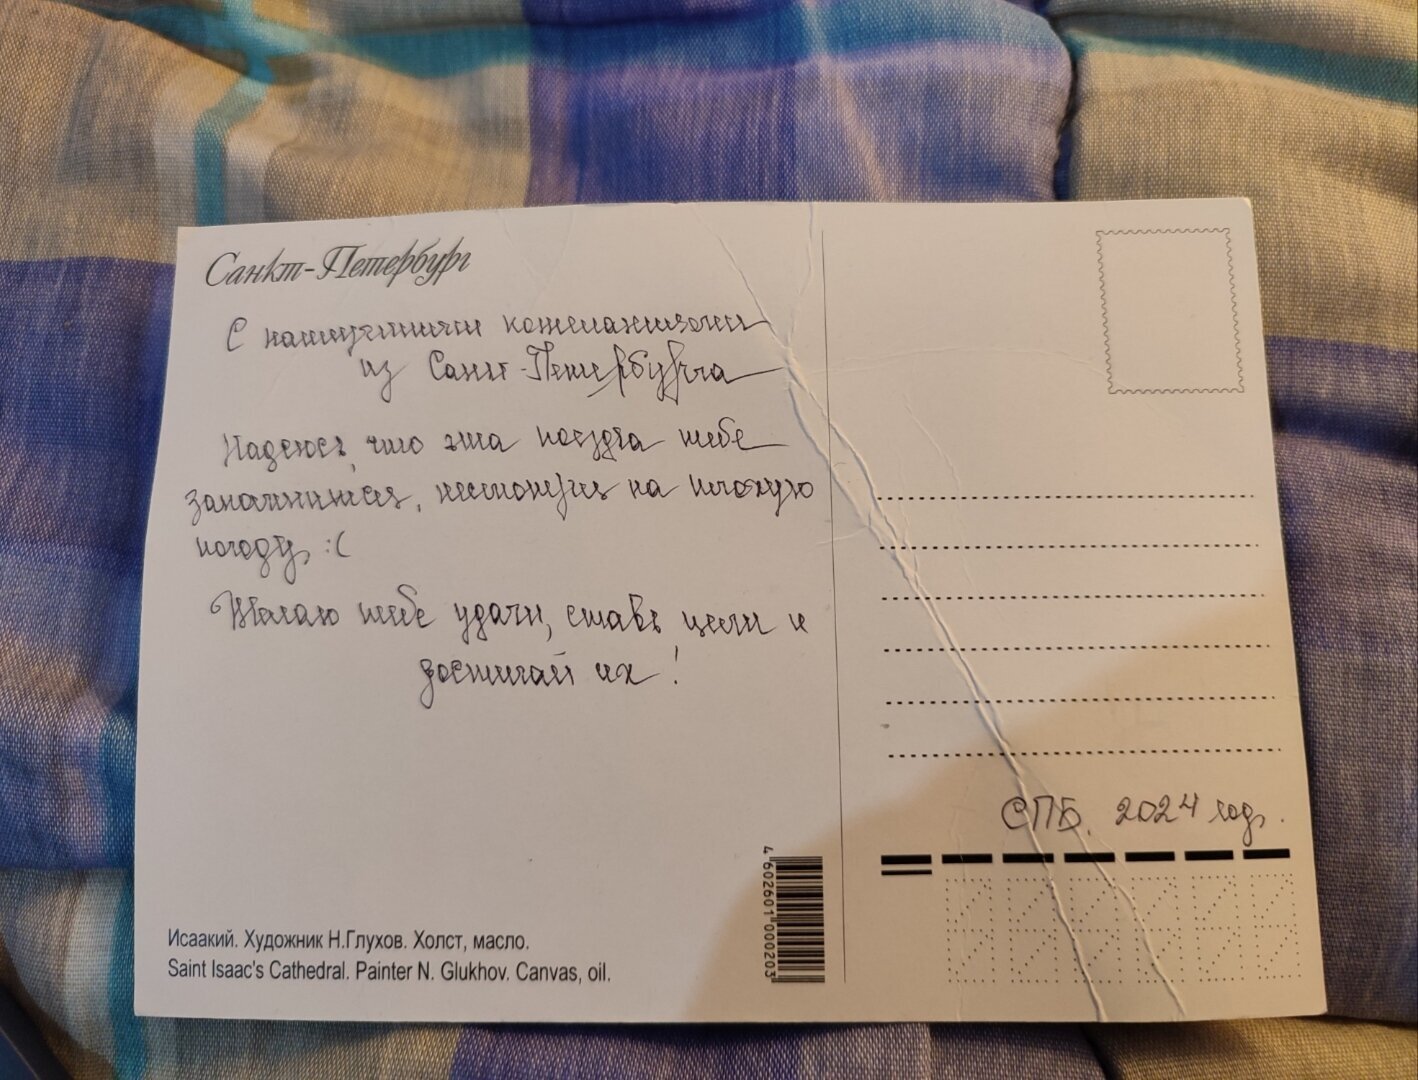 Санкт-Петербург
С наилучшими пожеланиями
из Санкт-Петербурга
Надеюсь, что эта поездка тебе
запомнится, несмотря на плохую
погоду :(
Желаю тебе удачи, ставь цели и
достигай их!
СПБ. 2024 год.
4 602601 000203
Исаакий. Художник Н.Глухов. Холст, масло.
Saint Isaac's Cathedral. Painter N. Glukhov. Canvas, oil.